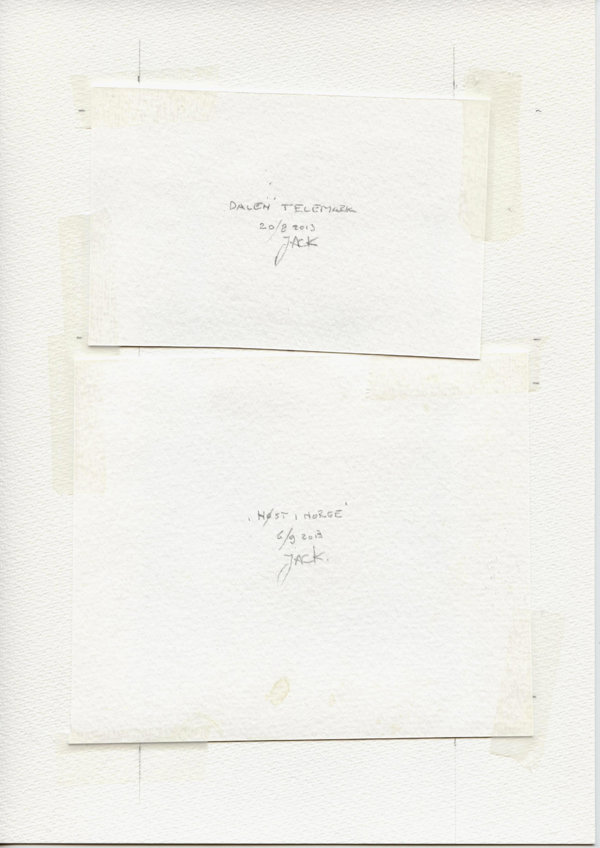 DALEN" TELEMARK
20/8 2013
JACK
, HØST I NORGE'
6/9 2013
JACK.